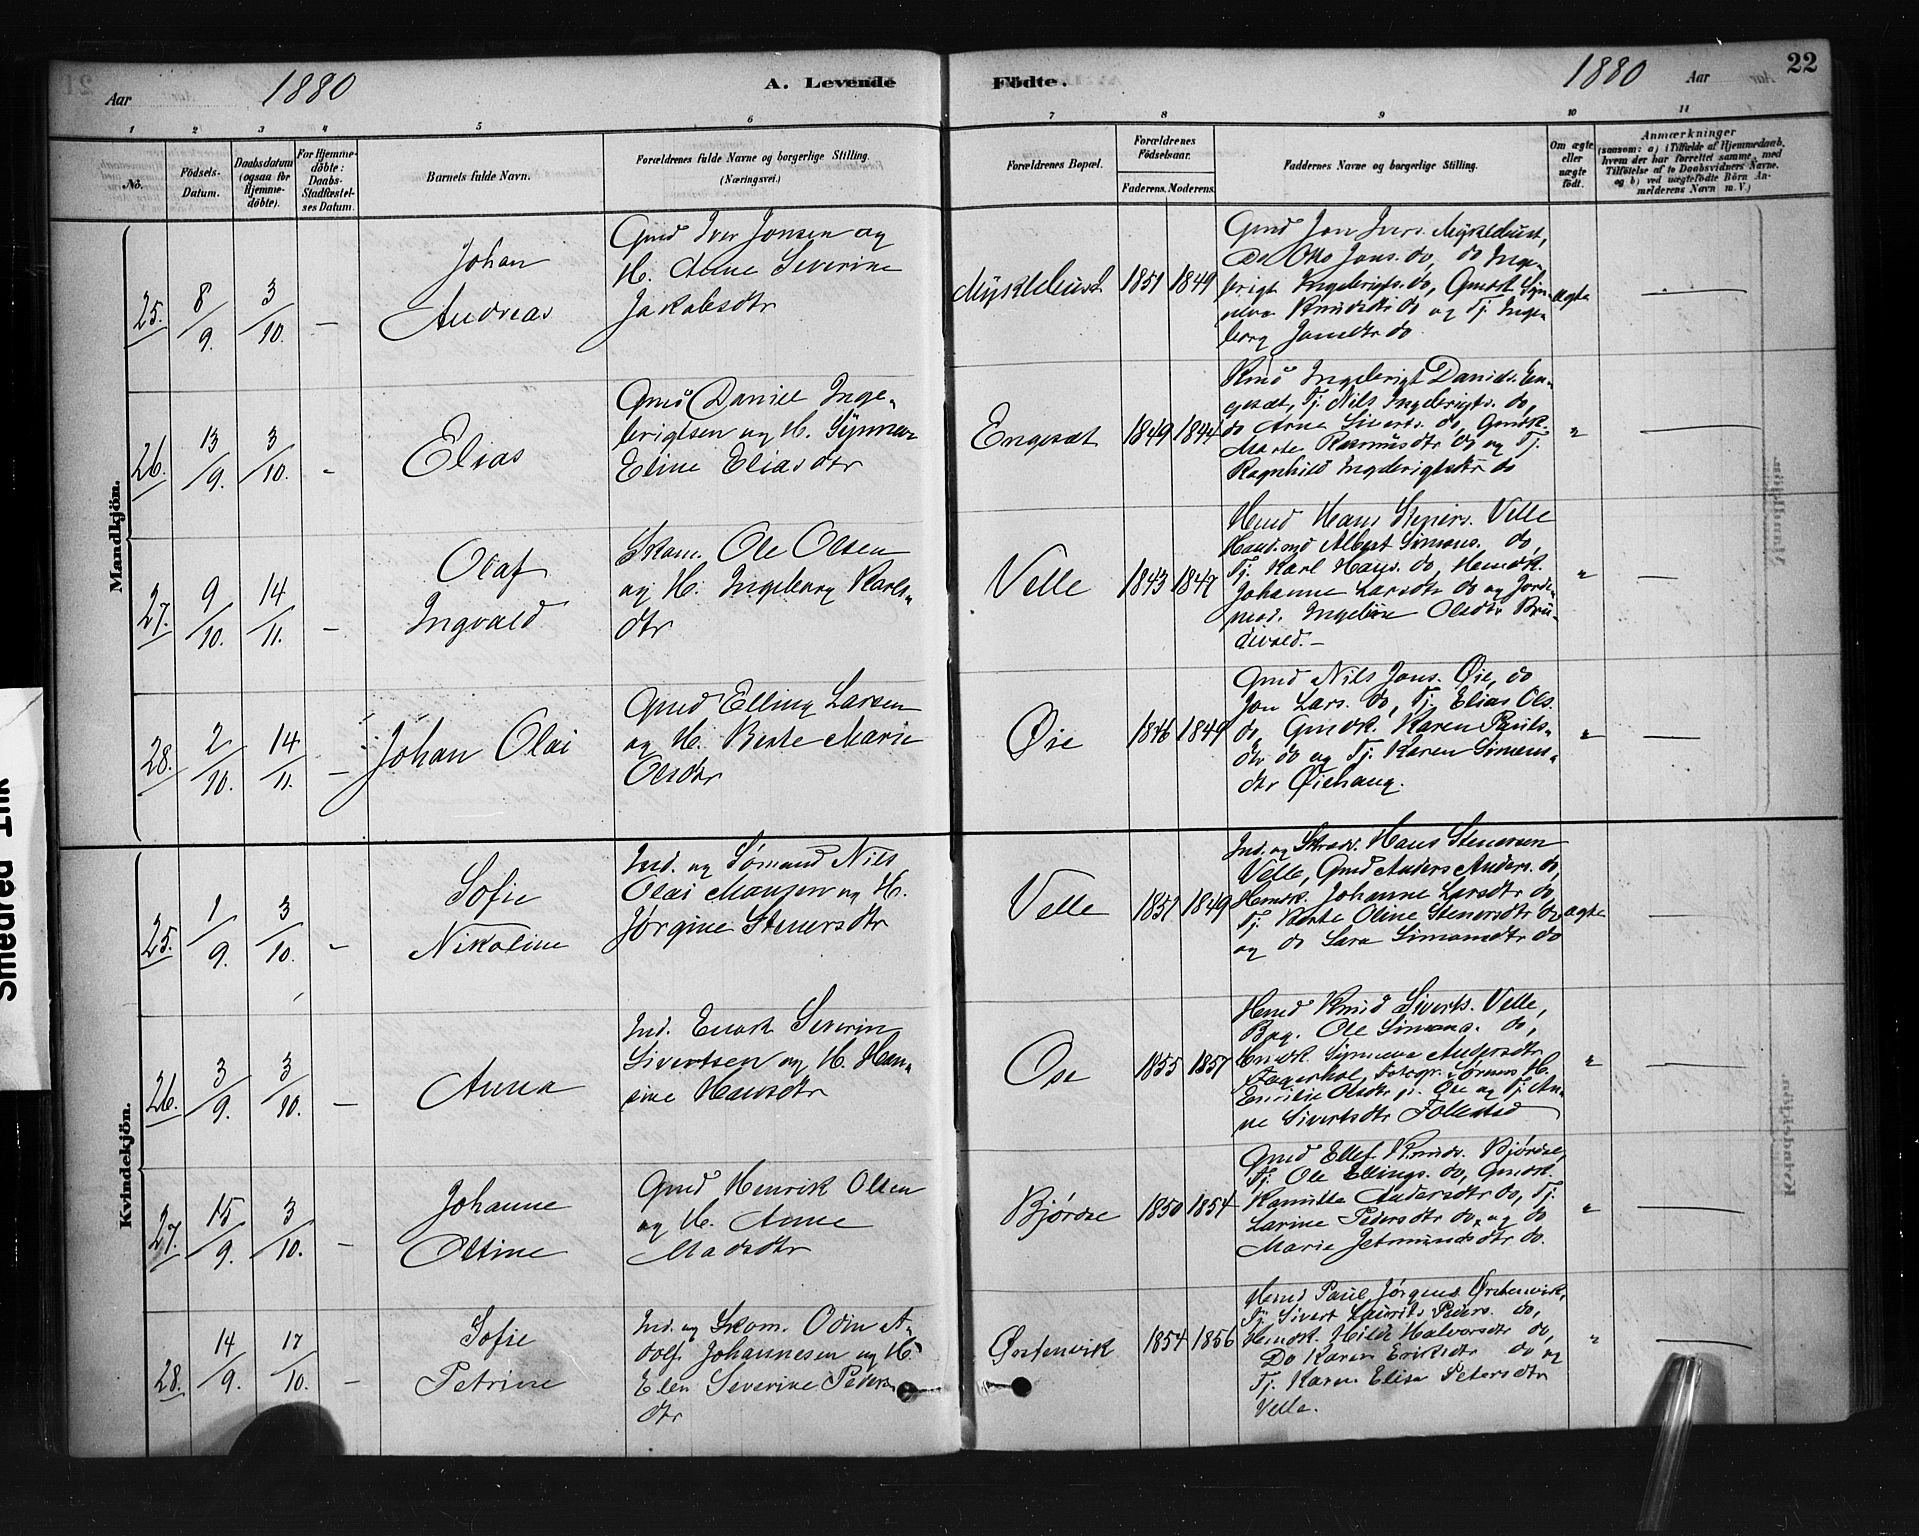 Aar 1880 A. Levende
Födte. 1880 Aar 22
1 2 3 4 5 6 7 8 9 10 11
No.
Födsels-
Datum.
Daabsdatum
(ogsaa for
Hjemme-
döbte).
For Hjemme-
döbte:
Daabs-
Stadfæstel-
ses Datum.
Barnets fulde Navn.
Forældrenes fulde Navne og borgerlige Stilling.
(Næringsvei.)
Forældrenes Bopæl.
Forældrenes
Födselsaar.
Faderens. Moderens.
Faddernes Navne og borgerlige Stilling.
Om ægte
eller
uægte
födt.
Anmærkninger
(saasom: a) i Tilfælde af Hjemmedaab,
hvem der har forrettet samme, med
Tilföielse af to Daabsvidners Navne.
og b) ved uægtefödte Börn An-
melderens Navn m. V.)
Mandkjön.
25. 8/9. 3/10. —
Johan
Andreas
Gmd Iver Jonsen og
H. Anne Severine
Jakobsdtr
Myklebust 1851 1849
Gmd Jon Ivers. Myklebust,
Do Otto Jons. do, do Inge-
brigt Ingebrigts. do, Gmdk Syn-
neva Knudsdtr do og Tj. Inge-
borg Jonsdtr do
ægte —
26. 13/9. 3/10. —
Elias
Gmd Daniel Inge-
brigtsen og H. Synneva
Eline Eliasdtr
Engeset 1849 1844
Kmd Ingebrigt Daniels. En-
geset, Tj. Nils Ingebrigts. do,
do Arne Siverts. do, Gmdk.
Marte Rasmusdtr do og Tj.
Ragnhild Ingebrigtsdtr do
" —
27. 9/10. 14/11. —
Olaf
Ingvald
Skom. Ole Olsen
og H. Ingeborg Karls-
dtr
Velle 1843 1847
Hmd Hans Steners. Velle
Albert Simons. do,
Tj. Karl Hans. do, Hmdk.
Johanne Larsdtr do og Jorde-
mod. Ingeline Olsdtr Bru-
devold. —
" —
28. 2/10. 14/11. —
Johan Olai
Gmd Elling Larsen
og H. Berte Marie
Olsdtr
Øie 1846 1849
Gmd Nils Jons. Øie, do
Jon Lars. do, Tj. Elias Ols.
do, Gmdk. Karen Pauls-
dtr do og Tj. Karen Simens-
dtr Øiehaug.
" —
Kvindekjön.
25. 1/9. 3/10. —
Sofie
Nikoline
Ind. og Sømand Nils
Olai Monsen og H.
Jørgine Stenersdtr
Velle 1851 1849
Ind. og Skræd. Hans Stenersen
Velle, Gmd Anders Anders. do,
Hmdk. Johanne Larsdtr do,
Tj. Berte Oline Stenersdtr do
og do Lara Simonsdtr do
ægte —
26. 3/9. 3/10. —
Anna
Ind. Enok Severin
Sivertsen og H. Han-
sine Hansdtr
Ose 1855 1857
Hmd Knud Siverts. Velle,
Bag. Ole Simons. do,
Hmdk. Synneva Andersdtr
Fagerhol, Fotogr. Sørnes H.
Emilie Olsdtr p. Øie og Tj. An-
ne Sivertsdtr Follestad
" —
27. 15/9. 3/10. —
Johanne
Ottine
Gmd Henrik Olsen
og H. Anne
Madsdtr
Bjørdse 1850 1854
Gmd Ellef Knuds. Bjørdse,
Tj. Ole Ellings. do, Gmdk.
Kamilla Andersdtr do, Tj.
Larine Pedersdtr do, og do
Marie Jetmundsdtr do.
" —
28. 14/9. 17/10. —
Sofie
Petrine
Ind. og Skom. Odin A-
dolf Johannesen og H.
Elen Severine Peders-
dtr
Ørstenvik 1854 1856
Hmd Paul Jørgens. Ørstenvik,
Tj. Sivert Laurits Peders. do,
Hmdk. Hilde Halvorsdtr do,
Do Karen Eriksdtr do og
Tj. Karen Elisa Petersdtr
Velle.
" —